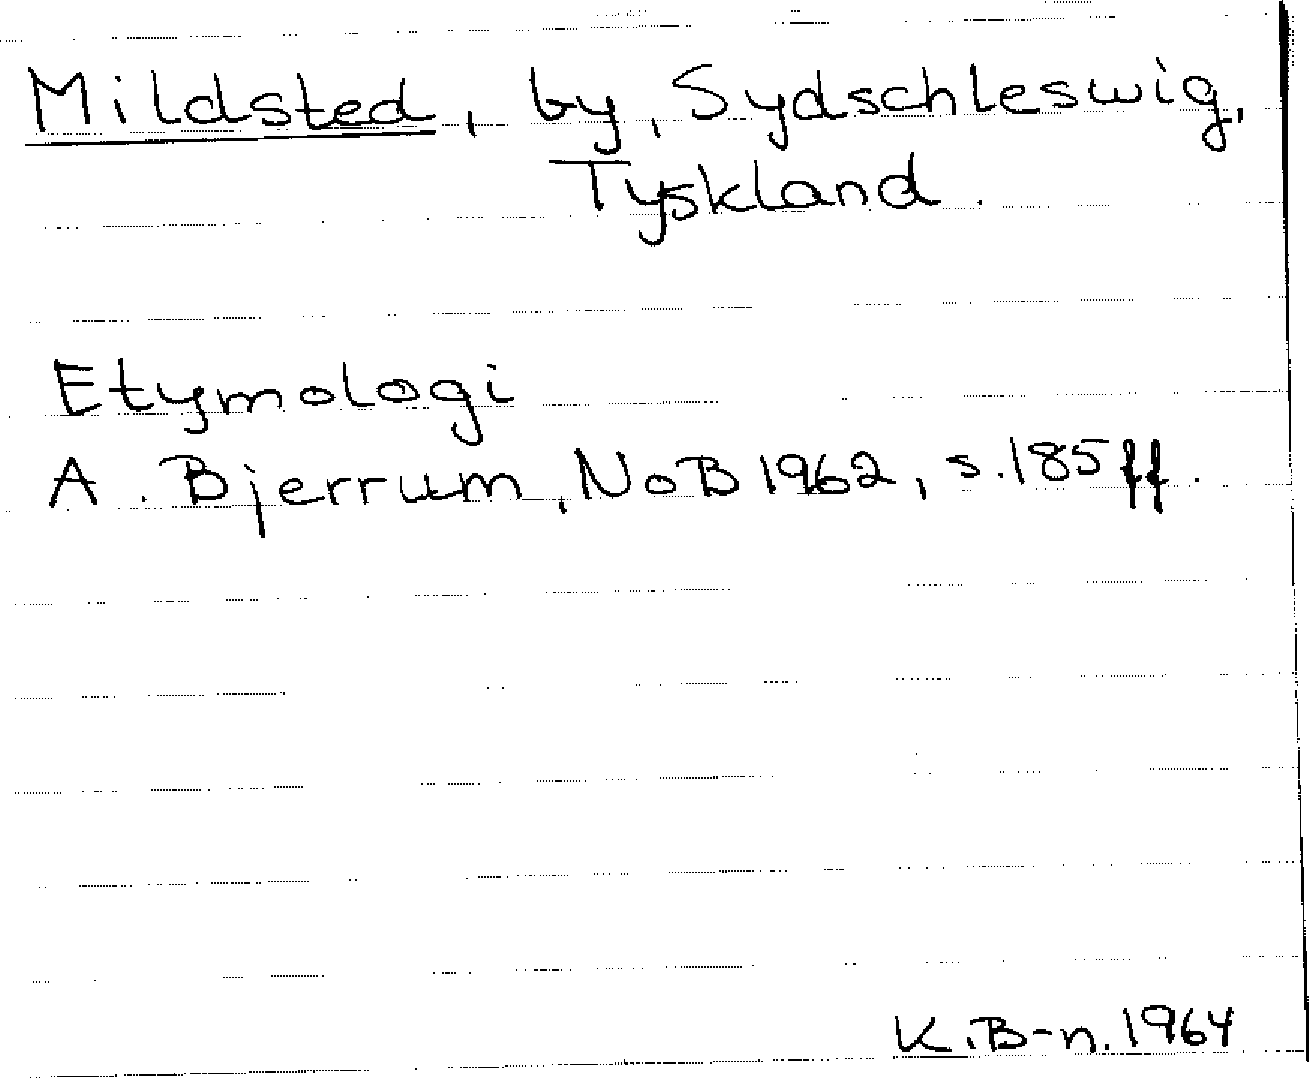 Mildsted, by, Sydschleswig,
Tyskland.
Etymologi
A. Bjerrum, NoB 1962, s. 185 ff.
K. B-n. 1964